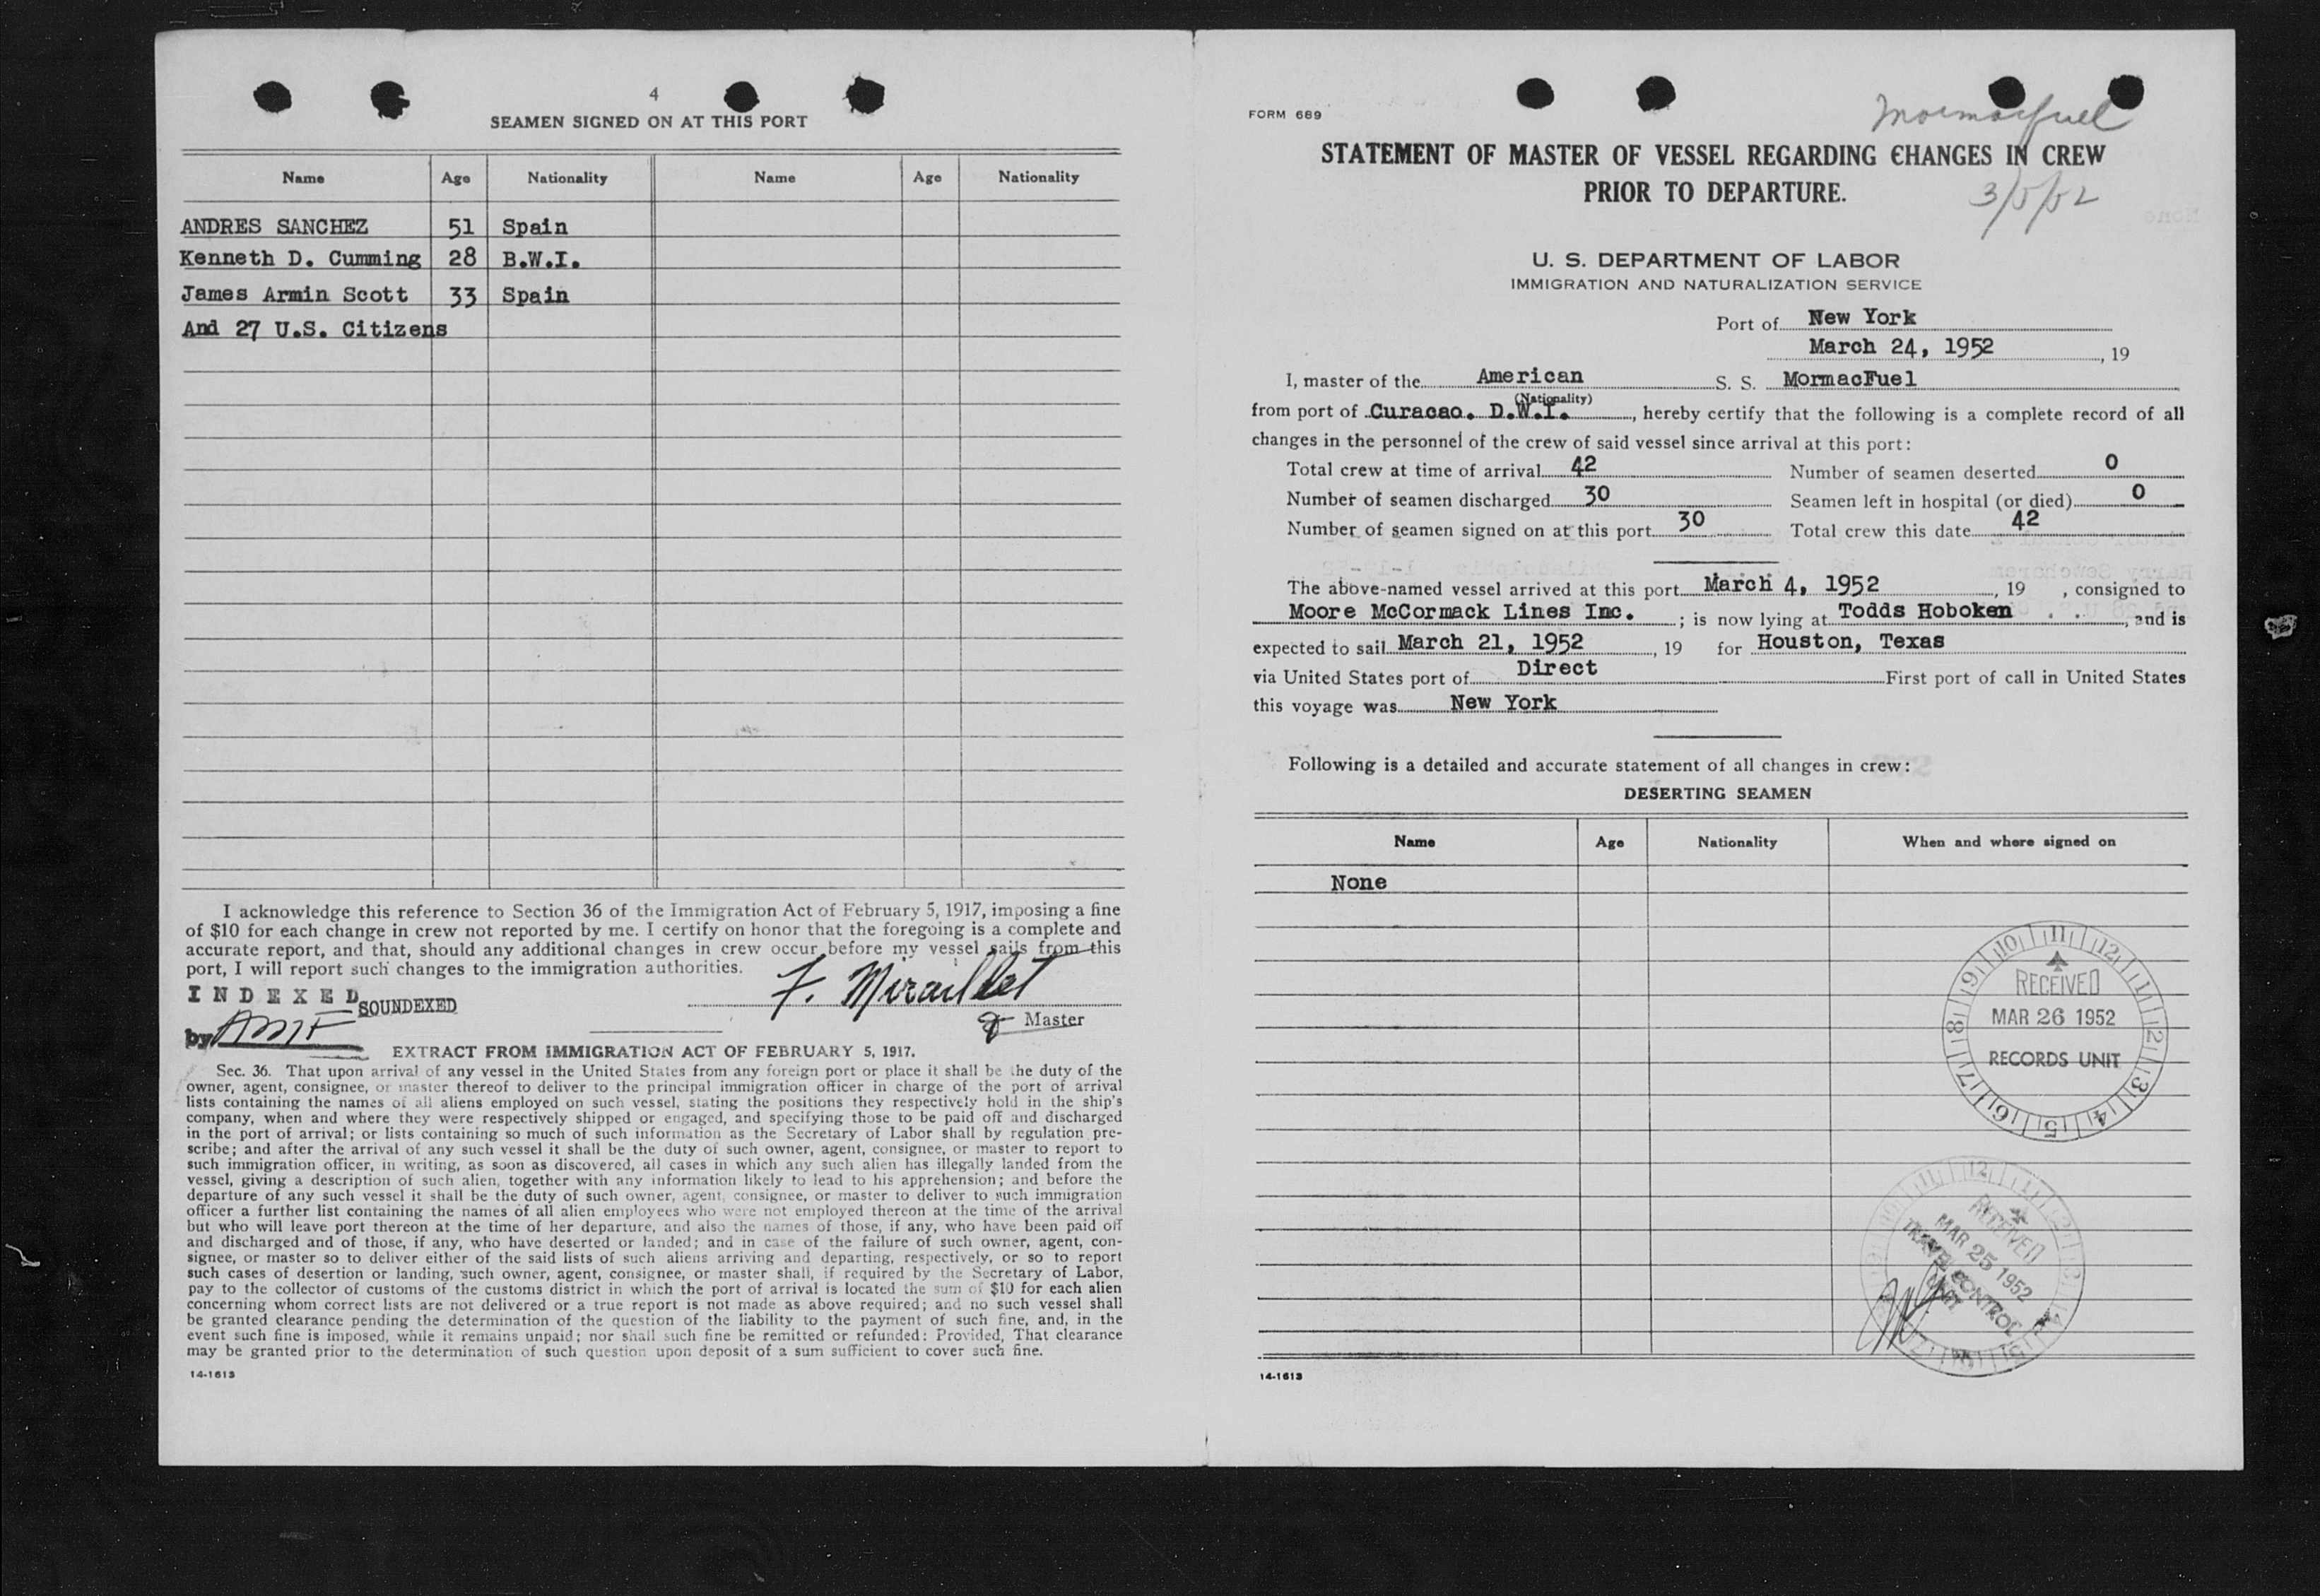 4
SEAMEN SIGNED ON AT THIS PORT
Name Age Nationality Name Age Nationality
ANDRES SANCHEZ 51 Spain
Kenneth D. Cumming 28 B.W.I.
James Armin Scott 33 Spain
And 27 U.S. Citizens
I acknowledge this reference to Section 36 of the Immigration Act of February 5, 1917, imposing a fine
of $10 for each change in crew not reported by me. I certify on honor that the foregoing is a complete and
accurate report, and that, should any additional changes in crew occur before my vessel sails from this
port, I will report such changes to the immigration authorities.
INDEXED SOUNDEXED
F. Miraillet
by AMF
Master
EXTRACT FROM IMMIGRATION ACT OF FEBRUARY 5, 1917.
Sec. 36. That upon arrival of any vessel in the United States from any foreign port or place it shall be the duty of the
owner, agent, consignee, or master thereof to deliver to the principal immigration officer in charge of the port of arrival
lists containing the names of all aliens employed on such vessel, stating the positions they respectively hold in the ship's
company, when and where they were respectively shipped or engaged, and specifying those to be paid off and discharged
in the port of arrival; or lists containing so much of such information as the Secretary of Labor shall by regulation pre-
scribe; and after the arrival of any such vessel it shall be the duty of such owner, agent, consignee, or master to report to
such immigration officer, in writing, as soon as discovered, all cases in which any such alien has illegally landed from the
vessel, giving a description of such alien, together with any information likely to lead to his apprehension; and before the
departure of any such vessel it shall be the duty of such owner, agent, consignee, or master to deliver to such immigration
officer a further list containing the names of all alien employees who were not employed thereon at the time of the arrival
but who will leave port thereon at the time of her departure, and also the names of those, if any, who have been paid off
and discharged and of those, if any, who have deserted or landed; and in case of the failure of such owner, agent, con-
signee, or master so to deliver either of the said lists of such aliens arriving and departing, respectively, or so to report
such cases of desertion or landing, such owner, agent, consignee, or master shall, if required by the Secretary of Labor,
pay to the collector of customs of the customs district in which the port of arrival is located the sum of $10 for each alien
concerning whom correct lists are not delivered or a true report is not made as above required; and no such vessel shall
be granted clearance pending the determination of the question of the liability to the payment of such fine, and, in the
event such fine is imposed, while it remains unpaid; nor shall such fine be remitted or refunded: Provided, That clearance
may be granted prior to the determination of such question upon deposit of a sum sufficient to cover such fine.
14-1613
FORM 689
Mormacfuel
STATEMENT OF MASTER OF VESSEL REGARDING CHANGES IN CREW
PRIOR TO DEPARTURE.
3/5/52
U. S. DEPARTMENT OF LABOR
IMMIGRATION AND NATURALIZATION SERVICE
Port of New York
March 24, 1952, 19
I, master of the American S. S. MormacFuel
(Nationality)
from port of Curacao. D.W.I., hereby certify that the following is a complete record of all
changes in the personnel of the crew of said vessel since arrival at this port:
Total crew at time of arrival 42 Number of seamen deserted 0
Number of seamen discharged 30 Seamen left in hospital (or died) 0
Number of seamen signed on at this port 30 Total crew this date 42
The above-named vessel arrived at this port March 4, 1952, 19 , consigned to
Moore McCormack Lines Inc. ; is now lying at Todds Hoboken, and is
expected to sail March 21, 1952, 19 for Houston, Texas
via United States port of Direct First port of call in United States
this voyage was New York
Following is a detailed and accurate statement of all changes in crew:
DESERTING SEAMEN
Name Age Nationality When and where signed on
None
RECEIVED
MAR 26 1952
RECORDS UNIT
RECEIVED
MAR 25 1952
TRAVEL CONTROL
14-1613